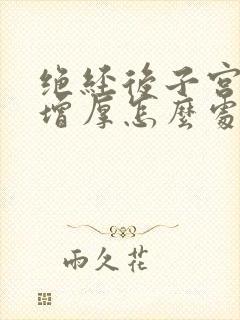 绝经後子宫
增厚怎麼處
雨久花